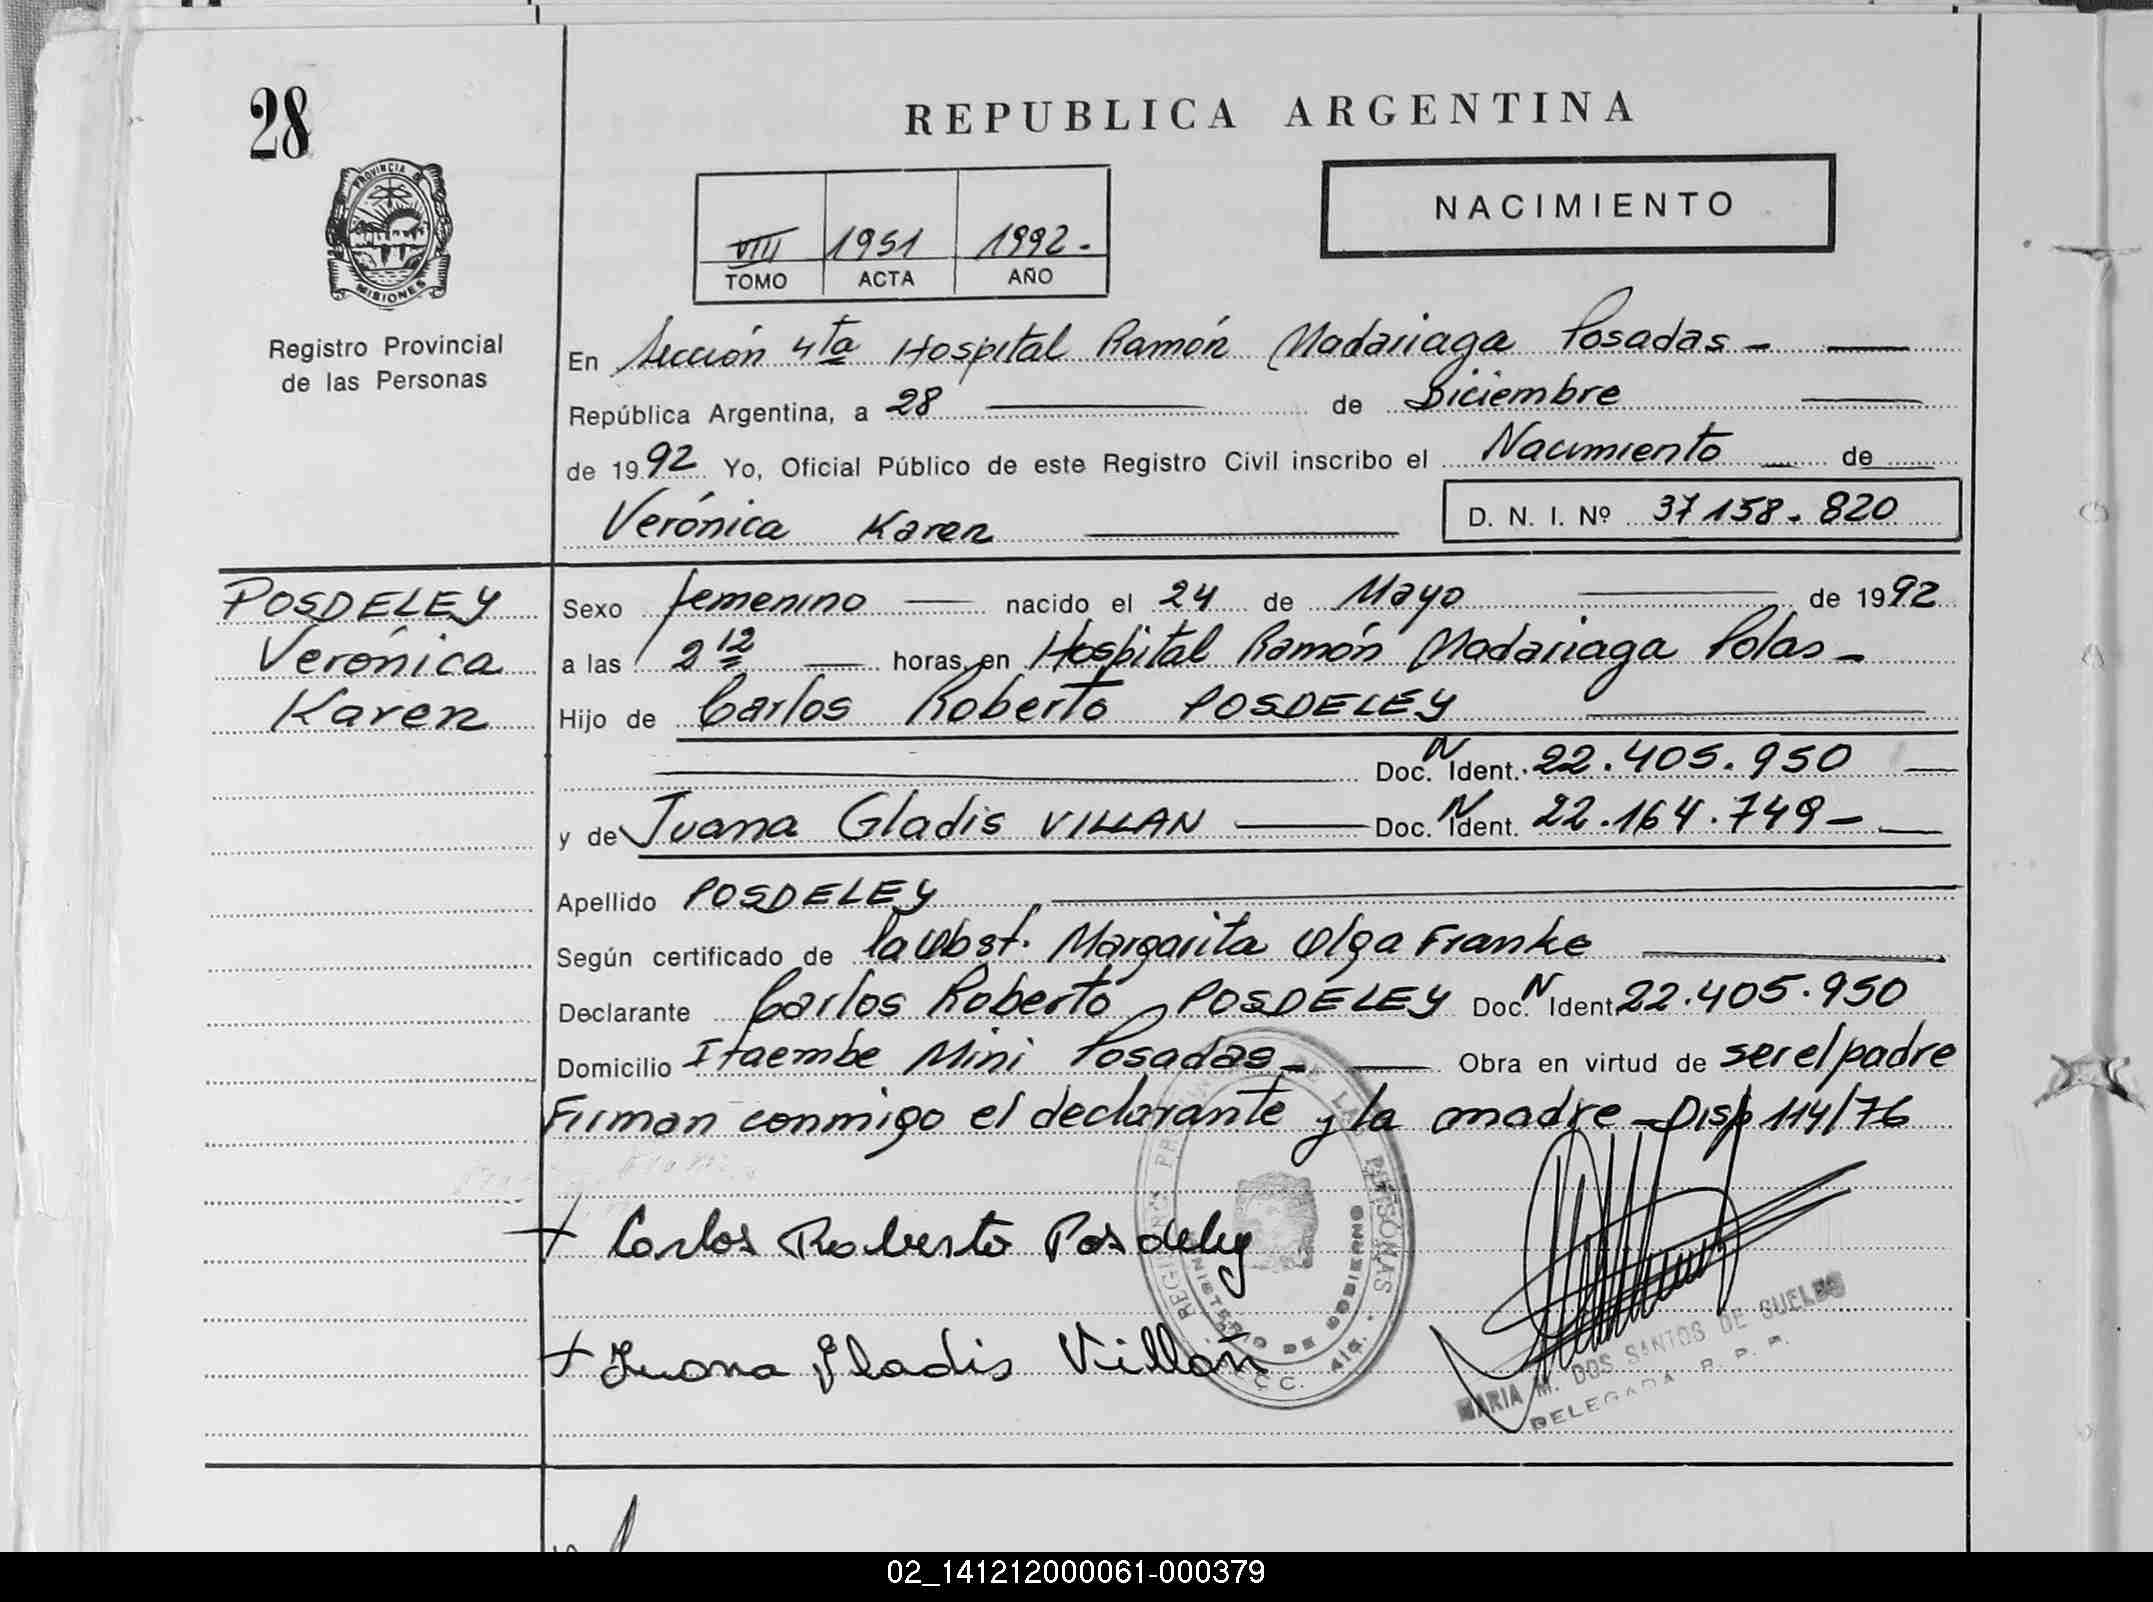 28
REPUBLICA ARGENTINA
PROVINCIA DE
MISIONES
NACIMIENTO
VIII 1951 1992.
TOMO ACTA AÑO
Registro Provincial
de las Personas
En Sección 4ta Hospital Ramón Madariaga Posadas
República Argentina, a 28 de Diciembre
de 1992 Yo, Oficial Público de este Registro Civil inscribo el Nacimiento de
Verónica Karen D. N. I. Nº 37158.820
POSDELEY
Verónica
Karen
Sexo femenino nacido el 24 de Mayo de 1992
a las 2 12 horas, en Hospital Ramón Madariaga Pdas
Hijo de Carlos Roberto POSDELEY
Doc. N Ident. 22.405.950
y de Juana Gladis VILLAN Doc. N Ident. 22.164.749
Apellido POSDELEY
Según certificado de la Obst. Margarita Olga Franke
Declarante Carlos Roberto POSDELEY Doc. N Ident. 22.405.950
Domicilio Itaembe Mini Posadas Obra en virtud de ser el padre
Firman conmigo el declarante y la madre - Disp 114/76
Carlos Roberto Posdeley
Juana Gladis Villán
REGISTRO PROVINCIAL DE LAS PERSONAS
MINISTERIO DE GOBIERNO
MARIA M. DOS SANTOS DE SUELDO
DELEGADA R. P. P.
02_141212000061-000379